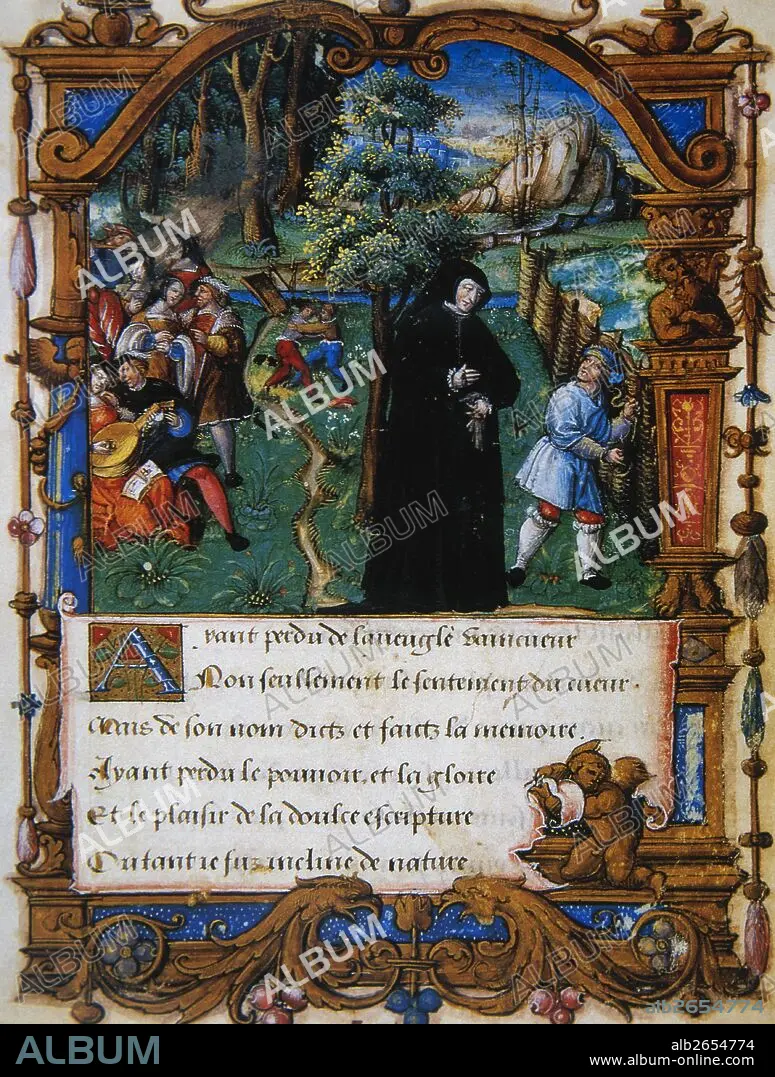 Ayant perdu de laueuglé vaincueur
Non seullement le sentement du cueur.
Mais de son nom dictz et faictz la memoire.
Ayant perdu le pouuoir, et la gloire
Et le plaisir de la doulce escripture
Ou tant ie fuz incline de nature
ALBUM
alb2654774
ALBUM
alb2654774
www.album-online.com